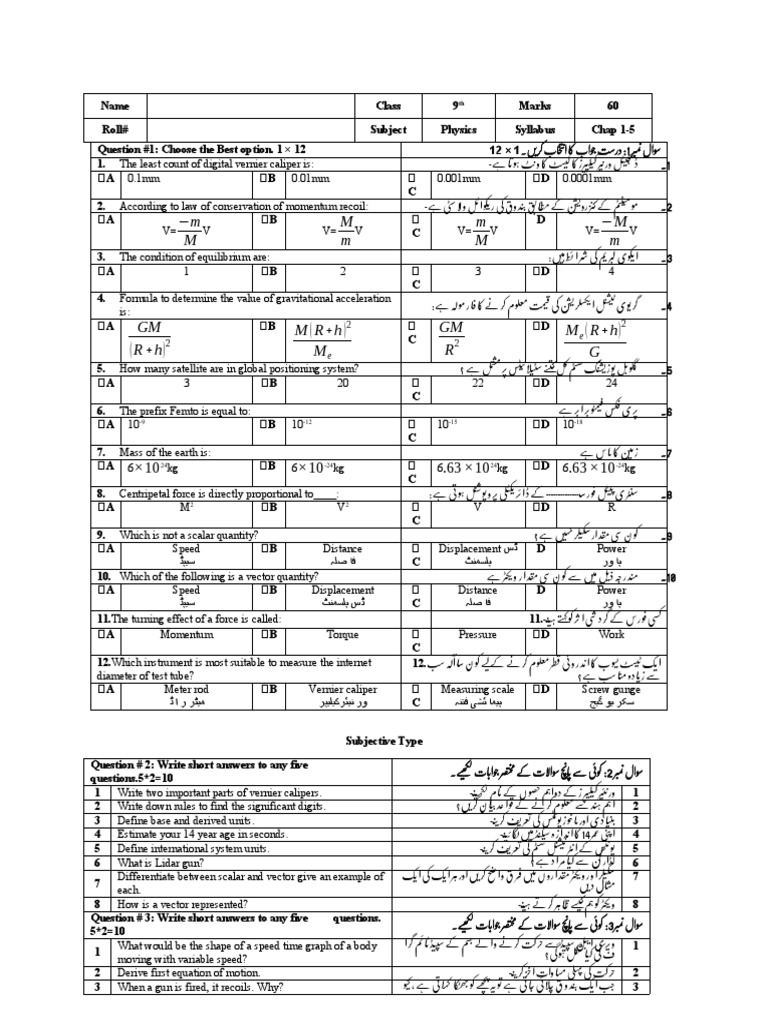 Name Class 9th Marks 60
Roll# Subject Physics Syllabus Chap 1-5
Question #1: Choose the Best option. 1 × 12 سوال نمبر1: درست جواب کا انتخاب کریں۔ 1 × 12
1. The least count of digital vernier caliper is: ڈیجیٹل ورنیئر کیلیپرز کا لیسٹ کاونٹ ہوتا ہے۔ 1۔
A 0.1mm B 0.01mm C 0.001mm D 0.0001mm
2. According to law of conservation of momentum recoil: مومینٹم کے کنزرویشن کے مطابق بندوق کی ریکوائل ولاسٹی ہے۔ 2۔
A V=−m/M V B V=M/m V C V=m/M V D V=−M/m V
3. The condition of equilibrium are: ایکوی لبریم کی شرائط ہیں: 3۔
A 1 B 2 C 3 D 4
4. Formula to determine the value of gravitational acceleration is: گریوی ٹیشنل ایکسلریشن کی قیمت معلوم کرنے کا فارمولہ ہے: 4۔
A GM/(R+h)² B M(R+h)²/Mₑ C GM/R² D Mₑ(R+h)²/G
5. How many satellite are in global positioning system? گلوبل پوزیشنگ سسٹم کل کتنے سٹیلائیٹس پر مشتمل ہے؟ 5۔
A 3 B 20 C 22 D 24
6. The prefix Femto is equal to: پری فکس فیمٹو برابر ہے 6۔
A 10-9 B 10-12 C 10-15 D 10-18
7. Mass of the earth is: زمین کا ماس ہے 7۔
A 6×10²⁴kg B 6×10⁻²⁴kg C 6.63×10²⁴kg D 6.63×10⁻²⁴kg
8. Centripetal force is directly proportional to____: سنٹری پیٹل فورس ------------ کے ڈائریکٹلی پروپوشنل ہوتی ہے: 8۔
A M² B V² C V D R
9. Which is not a scalar quantity? کون سی مقدار سکیلر نہیں ہے؟ 9۔
A Speed سپیڈ B Distance فاصلہ C Displacement ڈس پلسمنٹ D Power پاور
10. Which of the following is a vector quantity? مندرجہ ذیل میں سے کون سی مقدار ویکٹر ہے 10۔
A Speed سپیڈ B Displacement ڈس پلسمنٹ C Distance فاصلہ D Power پاور
11.The turning effect of a force is called: کسی فورس کے گردشی اثر کو کہتے ہیں۔ 11۔
A Momentum B Torque C Pressure D Work
12.Which instrument is most suitable to measure the internet ایک ٹیسٹ ٹیوب کا اندرونی قطر معلوم کرنے کے لیے کون سا آلہ سب 12۔
diameter of test tube? سے زیادہ مناسب ہے؟
A Meter rod میٹر راڈ B Vernier caliper ورنیئر کیلیپر C Measuring scale D Screw gunge سکریو گیج
Subjective Type
Question # 2: Write short answers to any five سوال نمبر2: کوئی سے پانچ سوالات کے مختصر جوابات لکھیے۔
questions.5*2=10
1 Write two important parts of vernier calipers. ورنیئر کیلیپرز کے دو اہم حصوں کے نام لکھیں۔ 1
2 Write down rules to find the significant digits. اہم ہندسے معلوم کرنے کے قواعد بیان کریں؟ 2
3 Define base and derived units. بنیادی اور ماخوذ یونٹس کی تعریف کریں۔ 3
4 Estimate your 14 year age in seconds. اپنی عمر 14 کا اندازہ سیکنڈز میں لگائیے۔ 4
5 Define international system units. یونٹس کے انٹرنیشنل سسٹم کی تعریف کریں۔ 5
6 What is Lidar gun? لڈار گن سے کیا مراد ہے؟ 6
7 Differentiate between scalar and vector give an example of سکیلر اور ویکٹر مقداروں میں فرق واضح کریں اور ہر ایک کی ایک 7
each. مثال دیں
8 How is a vector represented? ویکٹر کو ہم کیسے ظاہر کرتے ہیں۔ 8
Question # 3: Write short answers to any five questions. سوال نمبر3: کوئی سے پانچ سوالات کے مختصر جوابات لکھیے۔
5*2=10
1 What would be the shape of a speed time graph of a body 1
moving with variable speed?
2 Derive first equation of motion. حرکت کی پہلی مساوات اخذ کریں۔ 2
3 When a gun is fired, it recoils. Why? جب ایک بندوق چلائی جاتی ہے تو یہ پیچھے کو جھٹکا کھاتی ہے، کیوں 3